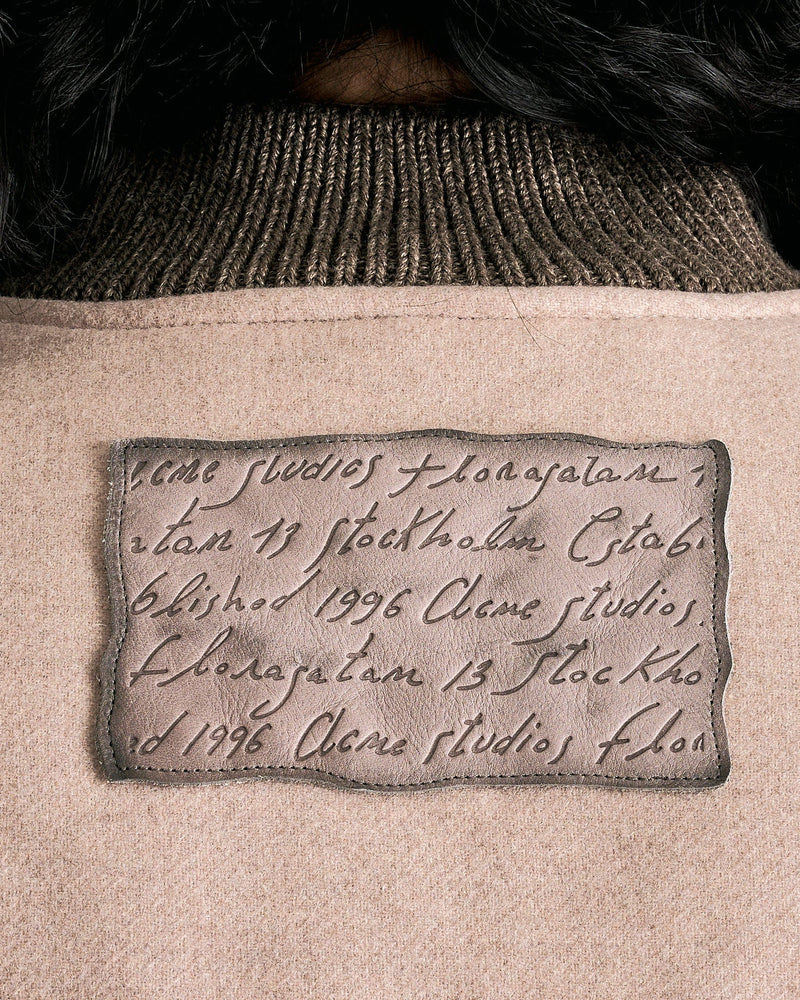 cme studios floragatan 1
atan 13 Stockholm Estab
blished 1996 Acne studios.
floragatan 13 Stockho
ed 1996 Acne studios flor